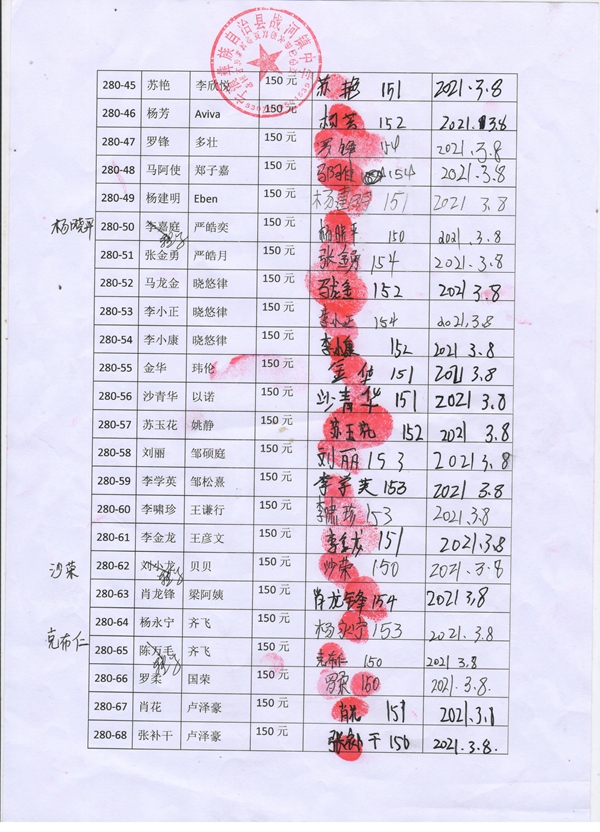 彝族自治县战河镇中
280-45 苏艳 李欣悦 150 元 苏艳 151 2021.3.8
280-46 杨芳 Aviva 150 元 杨芳 152 2021.3.8
280-47 罗锋 多壮 150 元 罗锋 154 2021.3.8
280-48 马阿使 郑子嘉 150 元 马阿使 154 2021.3.8
280-49 杨建明 Eben 150 元 杨建明 151 2021.3.8
杨晓平 280-50 李嘉庭 严皓奕 150 元 杨晓平 150 2021.3.8
280-51 张金勇 严皓月 150 元 张金勇 154 2021.3.8
280-52 马龙金 晓悠律 150 元 马龙金 152 2021 3.8
280-53 李小正 晓悠律 150 元 李小正 154 2021.3.8
280-54 李小康 晓悠律 150 元 李小康 152 2021 3.8
280-55 金华 玮伦 150 元 金华 151 2021.3.8
280-56 沙青华 以诺 150 元 沙青华 151 2021 3.8
280-57 苏玉花 姚静 150 元 苏玉花 152 2021 3.8
280-58 刘丽 邹硕庭 150 元 刘丽 153 2021 3.8
280-59 李学英 邹松熹 150 元 李学英 153 2021.3.8
280-60 李啸珍 王谦行 150 元 李啸珍 153 2021.3.8
280-61 李金龙 王彦文 150 元 李金龙 151 2021.3.8
沙荣 280-62 刘小龙 贝贝 150 元 沙荣 150 2021.3.8
280-63 肖龙锋 梁阿姨 150 元 肖龙锋 154 2021 3.8
280-64 杨永宁 齐飞 150 元 杨永宁 153 2021.3.8
克布仁 280-65 陈万毛 齐飞 150 元 克布仁 150 2021 3.8
280-66 罗柔 国荣 150 元 罗柔 150 2021.3.8.
280-67 肖花 卢泽豪 150 元 肖花 151 2021.3.1
280-68 张补干 卢泽豪 150 元 张补干 150 2021.3.8.